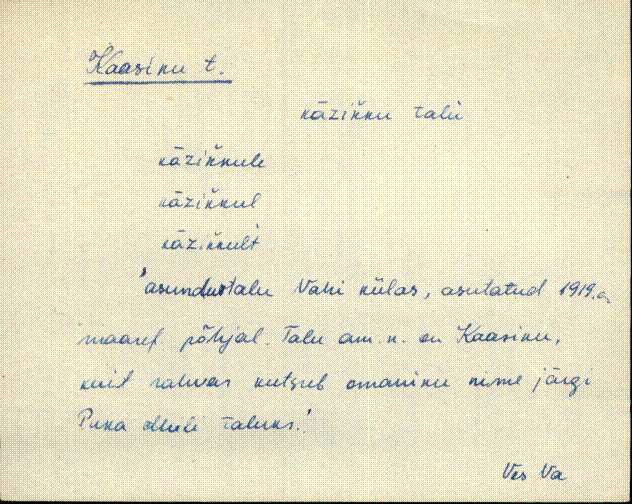 Kaasiku t.
kāzikku talu
kāzikkule
kāzikkul
kāzikkult
'asundustalu Vahi külas, asutatud 1919.a.
maaref. põhjal. Talu am. n. on Kaasiku,
kuid rahvas kutsub omaniku nime järgi
Puka Muli taluks.'
Ves Va